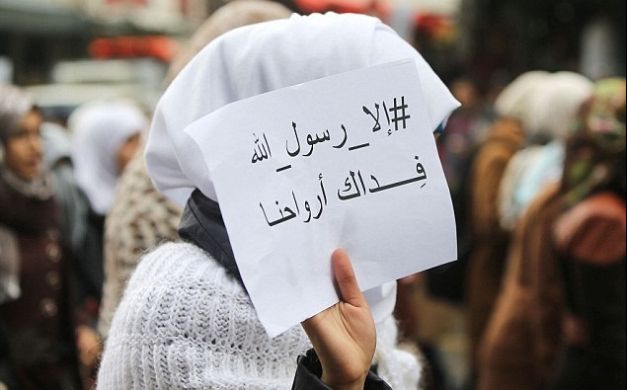 #إلا_رسول_الله
فِــداك أرواحنا